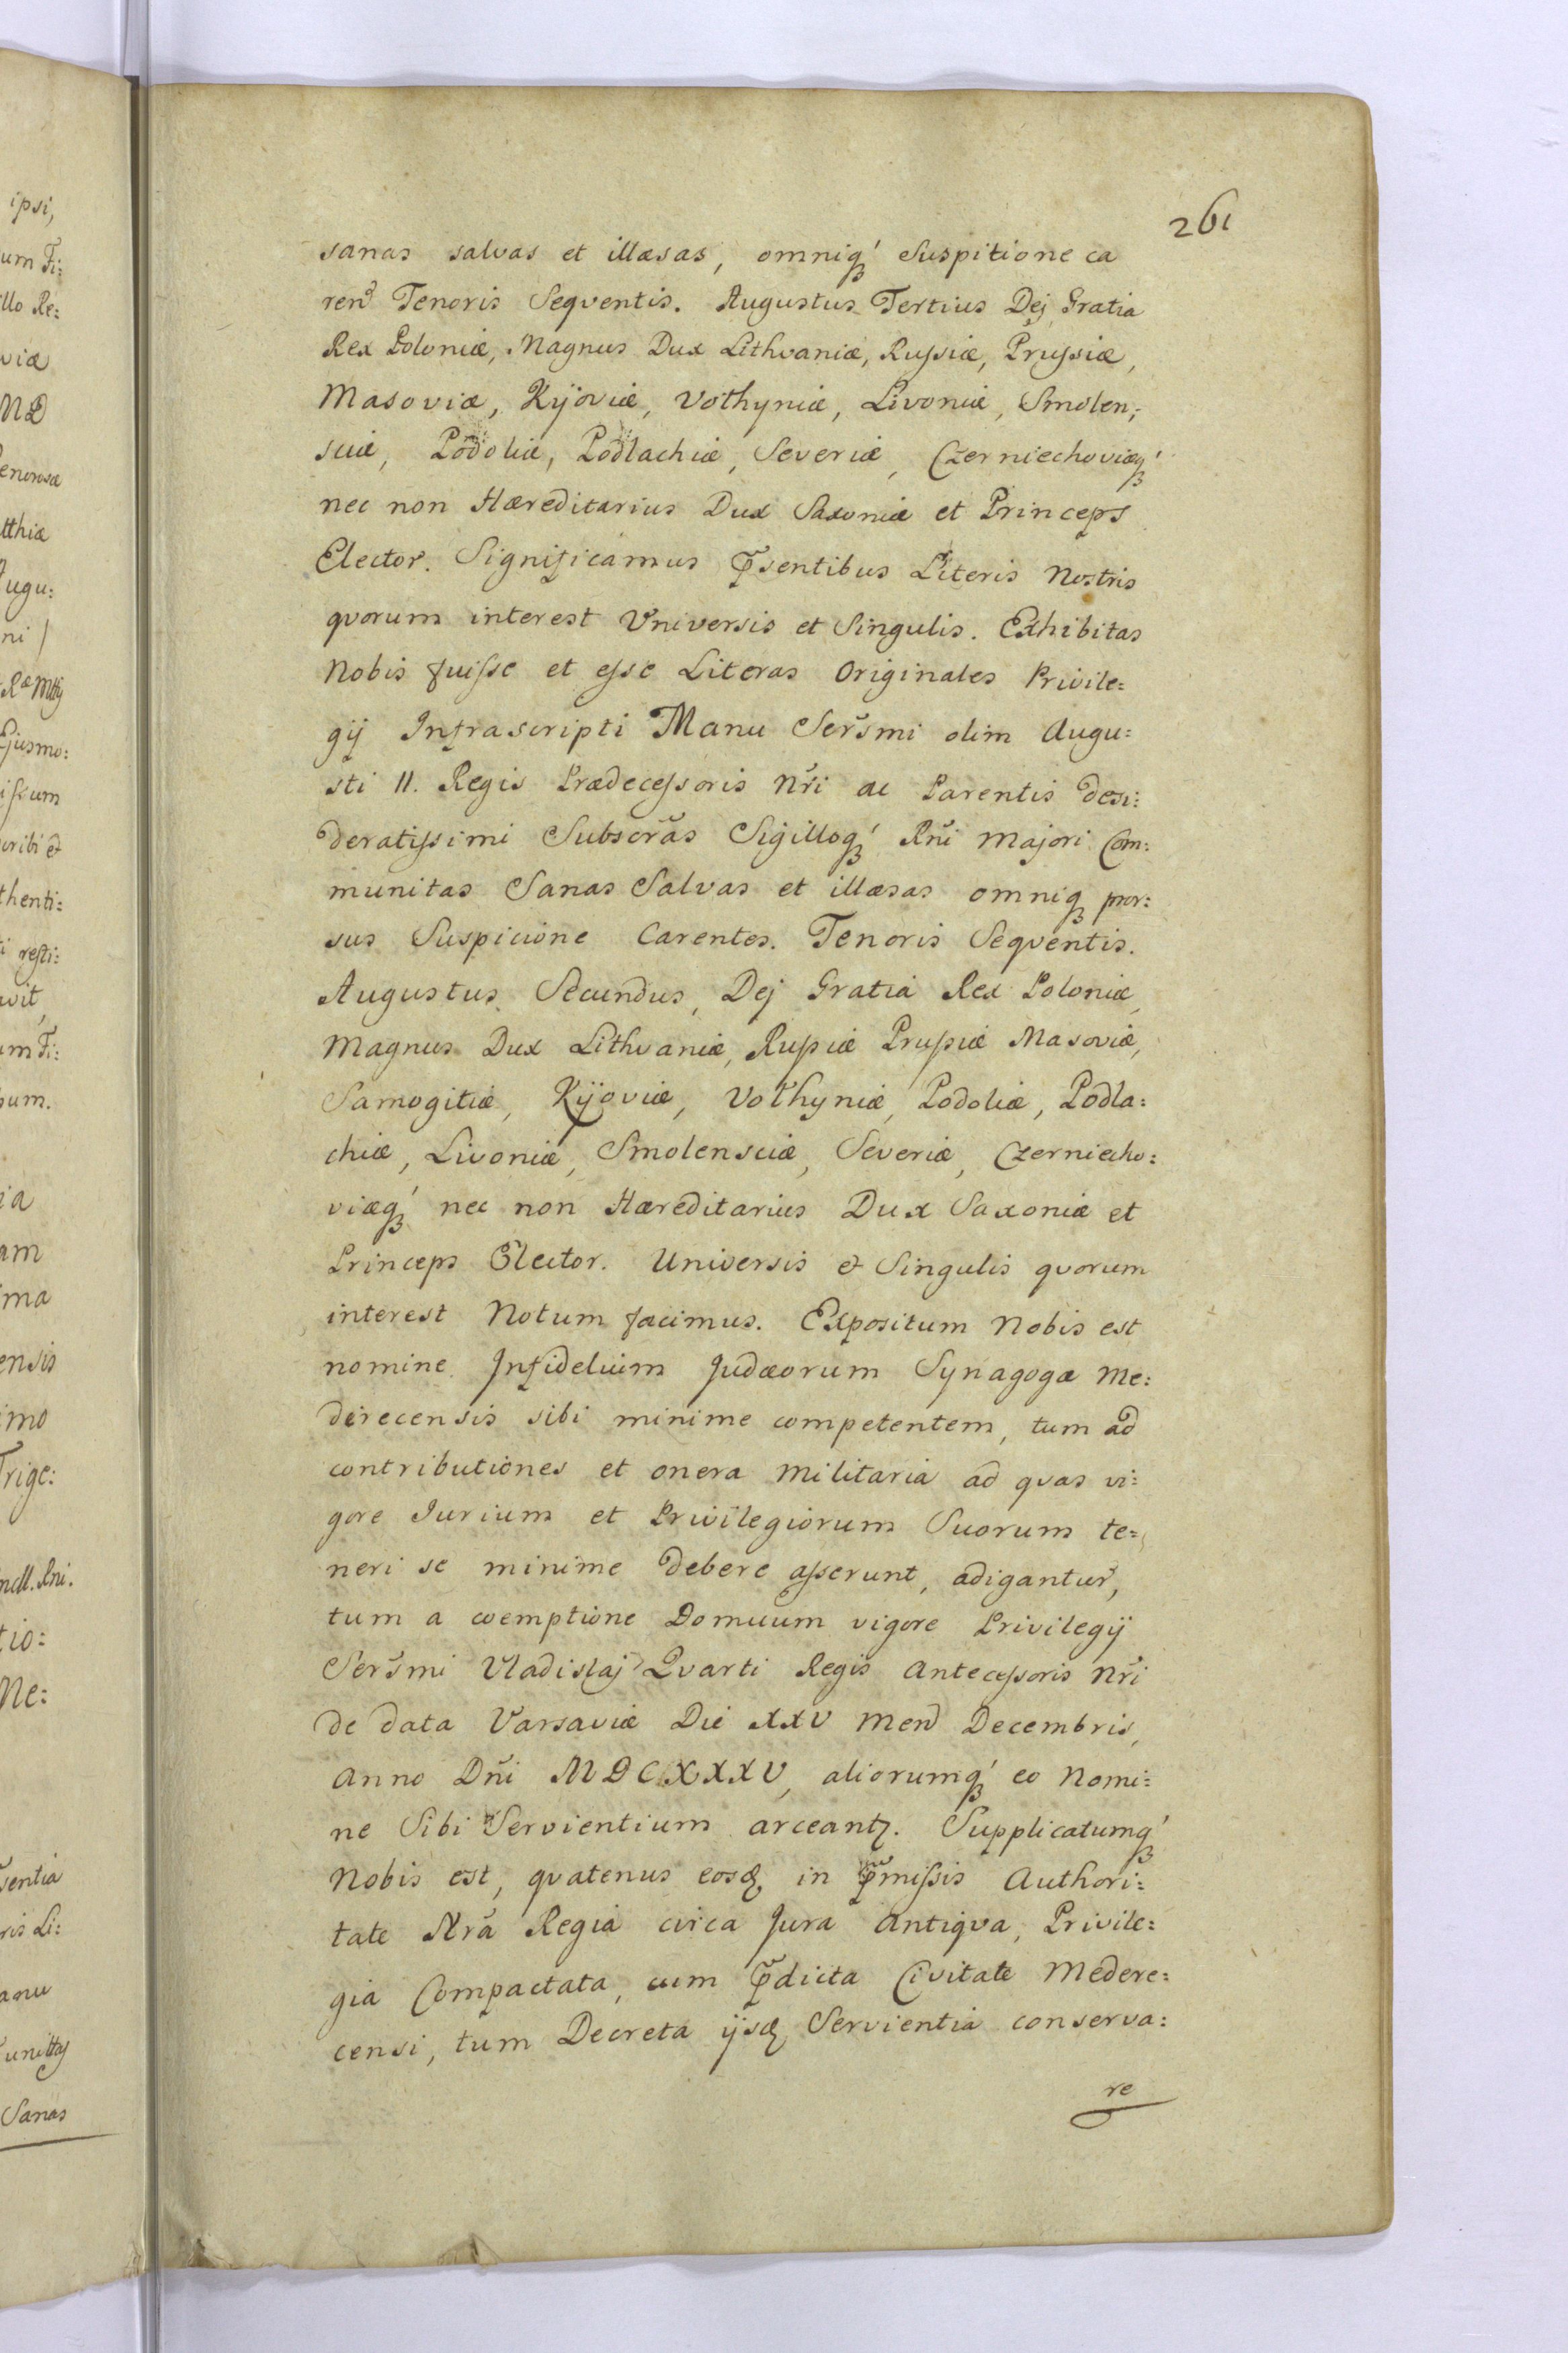 261
sanas salvas et illæsas, omniq́ꝫ Suspitione ca
renᵭ Tenoris Seqventis. Augustus Tertius Dej Gratia
Rex Poloniæ, Magnus Dux Lithvaniæ, Rußiæ, Prußiæ,
Masoviæ, Kÿoviæ, Vothyniæ, Livoniæ, Smolen;
sciæ, Podoliæ, Podlachiæ, Severiæ, Czerniechoviæq́ꝫ
nec non Hæreditarius Dux Saxoniæ et Princeps
Elector. Significamus p̃sentibus Literis Nostris
qvorum interest Universis et Singulis. Exhibitas
Nobis fuisse et esse Literas Originales Privile=
gij Infrascripti Manu Sers̃mi olim Augu=
sti II. Regis Prædecessoris Nr̃i ac Parentis desi=
deratissimi Subscr̃as Sigilloq́ꝫ Rñi Majori Com=
munitas Sanas Salvas et illæsas omniqꝫ pror=
sus Suspicione Carentes. Tenoris Seqventis.
Augustus Secundus, Dej Gratia Rex Poloniæ,
Magnus Dux Lithvaniæ, Rußiæ Prußiæ Masoviæ,
Samogitiæ, Kÿoviæ, Vothyniæ, Podoliæ, Podla=
chiæ, Livoniæ, Smolensciæ, Severiæ, Czerniecho=
viæq́ꝫ nec non Hæreditarius Dux Saxoniæ et
Princeps Elector. Universis & Singulis qvorum
interest Notum facimus. Expositum Nobis est
nomine Infidelium Judæorum Synagogæ Me=
derecensis sibi minime competentem, tum ad
contributiones et onera militaria ad qvas vi=
gore Iurium et Privilegiorum Suorum te=
neri se minime debere asserunt, adigantur,
tum a coemptione Domuum vigore Privilegij
Sers̃mi Vladislaj Qvarti Regis Antecessoris Nr̃i
de data Varsaviæ Die XXV Menᵭ Decembris,
Anno Dñi MDCXXXV, aliorumq́ꝫ eo Nomi=
ne Sibi Servientium arceantꝫ. Supplicatumq́ꝫ
Nobis est, qvatenus eosd, in p̃missis Authori=
tate Nr̃a Regia circa Jura Antiqva, Privile=
gia Compactata, cum p̃dicta Civitate Medere=
censi, tum Decreta ijsd, Servientia conserva=
re
ipsi,
um Fi=
illo Re=
viæ
enerosæ
tthiæ
Augu=
ni
Ejusmo=
issum
thenti=
resti=
avit,
um Fi=
ia
am
ima
ensis
imo
Trige=
tio=
Ne=
sentia
ris Li=
anu
Sanas